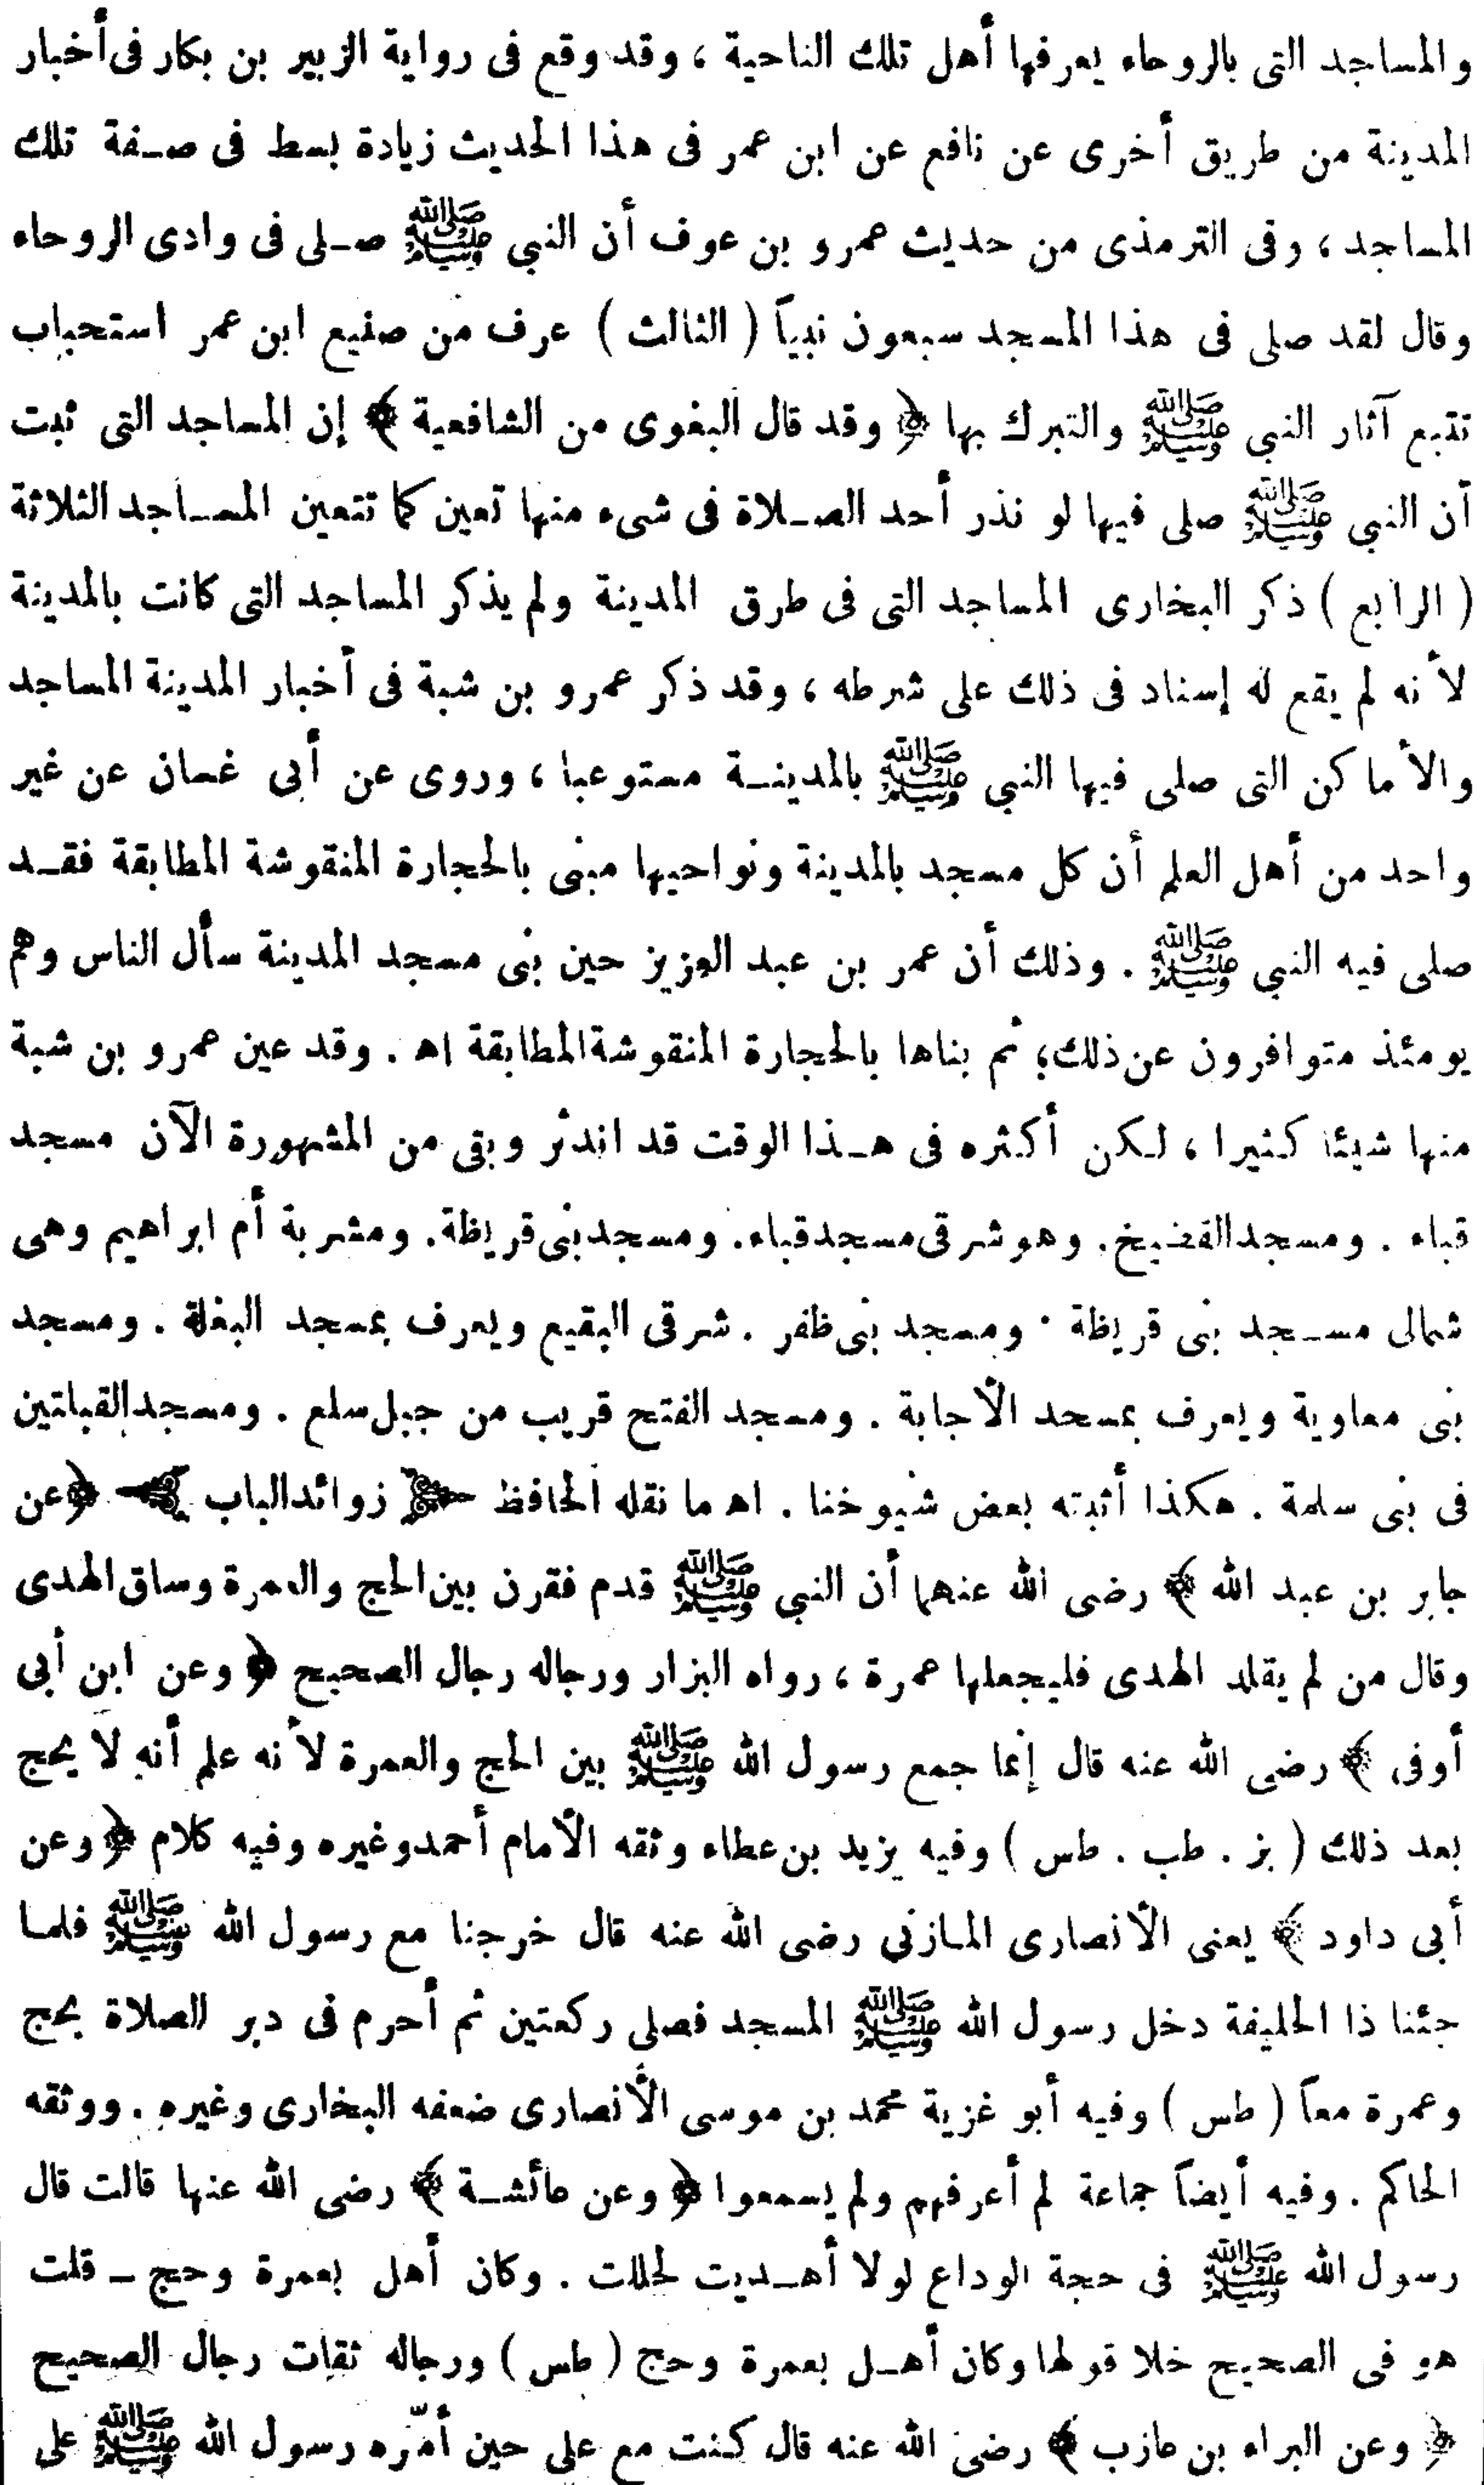 والمساجد التى بالروحاء يعرفها أهل تلك الناحية ، وقد وقع فى رواية الزبير بن بكار فى أخبار
المدينة من طريق أخرى عن نافع عن ابن عمر فى هذا الحديث زيادة بسط فى صـفة تلك
المساجد ، وفى الترمذى من حديث عمرو بن عوف أن النبي ﷺ صـلى فى وادى الروحاء
وقال لقد صلى فى هذا المسجد سبعون نبياً ( الثالث ) عرف من صنيع ابن عمر استحباب
تتبع آثار النبي ﷺ والتبرك بها ﴿ وقد قال البغوى من الشافعية ﴾ إن المساجد التى ثبت
أن النبي ﷺ صلى فيها لو نذر أحد الصـلاة فى شىء منها تعين كما تتعين المسـاجد الثلاثة
( الرابع ) ذكر البخارى المساجد التى فى طرق المدينة ولم يذكر المساجد التى كانت بالمدينة
لأنه لم يقع له إسناد فى ذلك على شرطه ، وقد ذكر عمرو بن شبة فى أخبار المدينة المساجد
والأماكن التى صلى فيها النبي ﷺ بالمدينـة مستوعبا ، وروى عن أبى غسان عن غير
واحد من أهل العلم أن كل مسجد بالمدينة ونواحيها مبنى بالحجارة المنقوشة المطابقة فقـد
صلى فيه النبي ﷺ . وذلك أن عمر بن عبد العزيز حين بنى مسجد المدينة سأل الناس وهم
يومئذ متوافرون عن ذلك؛ ثم بناها بالحجارة المنقوشة المطابقة اه . وقد عين عمرو بن شبة
منها شيئا كثيرا ، لكن أكثره فى هـذا الوقت قد اندثر وبقى من المشهورة الآن مسجد
قباء . ومسجد الفضيخ. وهو شرقى مسجد قباء. ومسجد بنى قريظة. ومشربة أم ابراهيم وهى
شمالى مسـجد بنى قريظة . ومسجد بنى ظفر . شرقى البقيع ويعرف بمسجد البغلة . ومسجد
بنى معاوية ويعرف بمسجد الأجابة . ومسجد الفتح قريب من جبل سلع . ومسجد القبلتين
فى بنى سلمة . هكذا أثبته بعض شيوخنا . اه ما نقله الحافظ زوائد الباب ﴿عن
جابر بن عبد الله ﴾ رضى الله عنهما أن النبي ﷺ قدم فقرن بين الحج والعمرة وساق الهدى
وقال من لم يقلد الهدى فليجعلها عمرة ، رواه البزار ورجاله رجال الصحيح ﴿ وعن ابن أبى
أوفى ﴾ رضى الله عنه قال إنما جمع رسول الله ﷺ بين الحج والعمرة لأنه علم أنه لا يحج
بعد ذلك ( بز . طب . طس ) وفيه يزيد بن عطاء وثقه الأمام أحمد وغيره وفيه كلام ﴿ وعن
أبى داود ﴾ يعنى الأنصارى المازنى رضى الله عنه قال خرجنا مع رسول الله ﷺ فلما
جئنا ذا الحليفة دخل رسول الله ﷺ المسجد فصلى ركعتين ثم أحرم فى دبر الصلاة بحج
وعمرة معاً ( طس ) وفيه أبو غزية محمد بن موسى الأنصارى ضعفه البخارى وغيره . ووثقه
الحاكم . وفيه أيضاً جماعة لم أعرفهم ولم يسمعوا ﴿ وعن عائشـة ﴾ رضى الله عنها قالت قال
رسول الله ﷺ فى حجة الوداع لولا أهـديت لحللت . وكان أهل بعمرة وحج ــ قلت
هو فى الصحيح خلا قولها وكان أهـل بعمرة وحج ( طس ) ورجاله ثقات رجال الصحيح
﴿ وعن البراء بن عازب ﴾ رضى الله عنه قال كنت مع على حين أمّره رسول الله ﷺ على